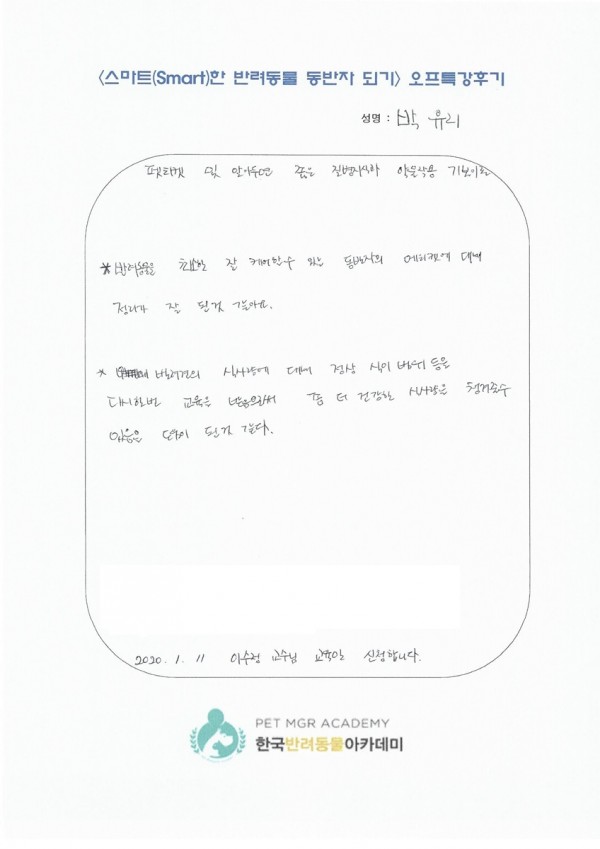 <스마트(Smart)한 반려동물 동반자 되기> 오프특강후기
성명 : 박 유리
펫티켓 및 알아두면 좋은 질병지식과 약물작용 기본이론
* 반려동물을 잘 케어할수 있는 동반자의 에티켓에 대해
정리가 잘 된것 같아요.
* 반려견의 식사량에 대해 정상 식이 범위 등을
다시한번 교육을 받음으로써 좀 더 건강한 식사량을 챙겨줄수
있음을 도움이 된것 같다.
2020. 1. 11 이수정 교수님 교육일 신청합니다.
PET MGR ACADEMY
한국반려동물아카데미